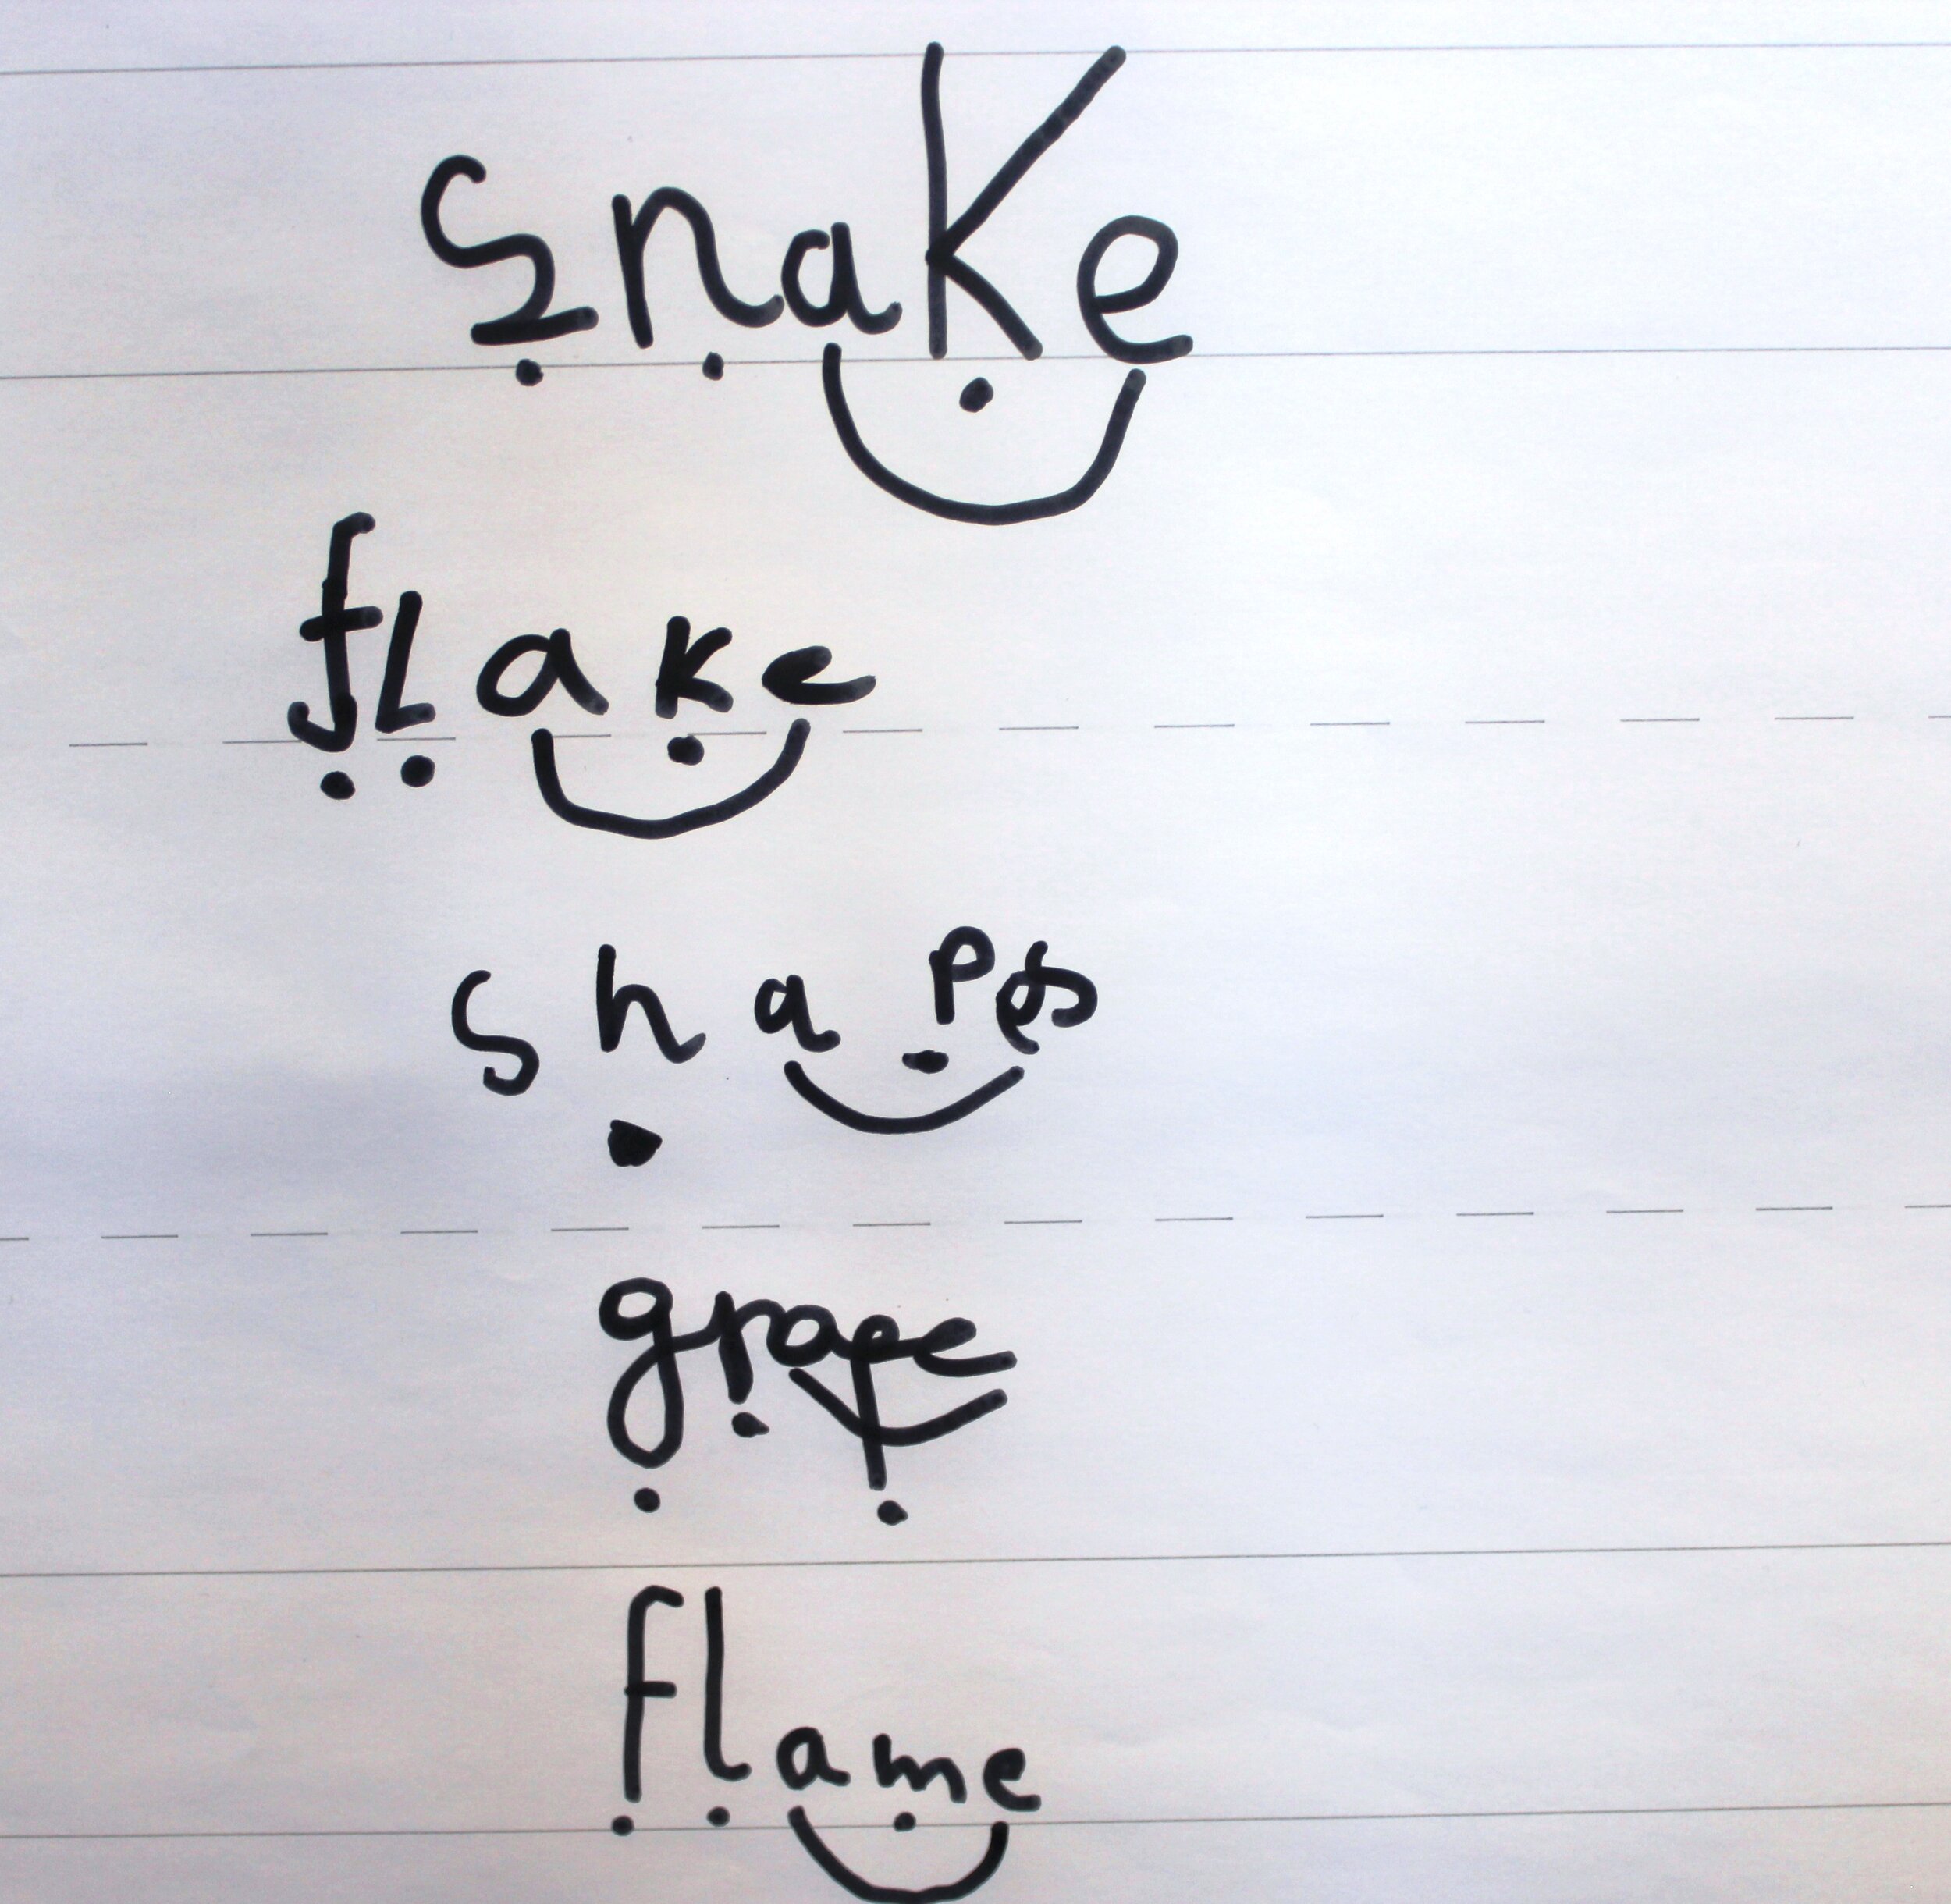 snake
flake
shapes
grape
flame